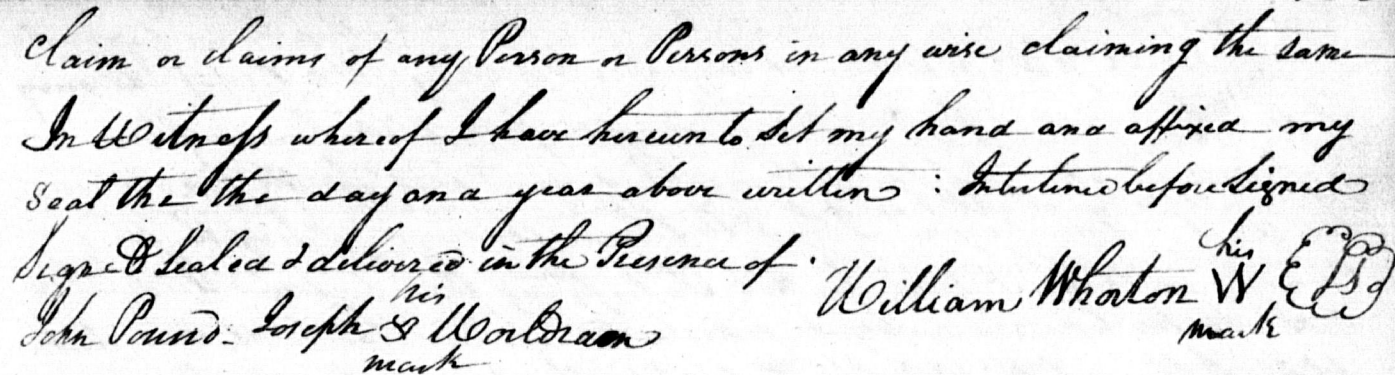 Claim or claims of any Person or Persons in any wise claiming the same
In Witness whereof I have hereunto Set my hand and affixed my
Seal the the day and year above written : Interlined before Signed
Signed Sealed & delivered in the Presence of .
his
William Whorton W LS
mark
his
John Pound. Joseph Worldram
mark